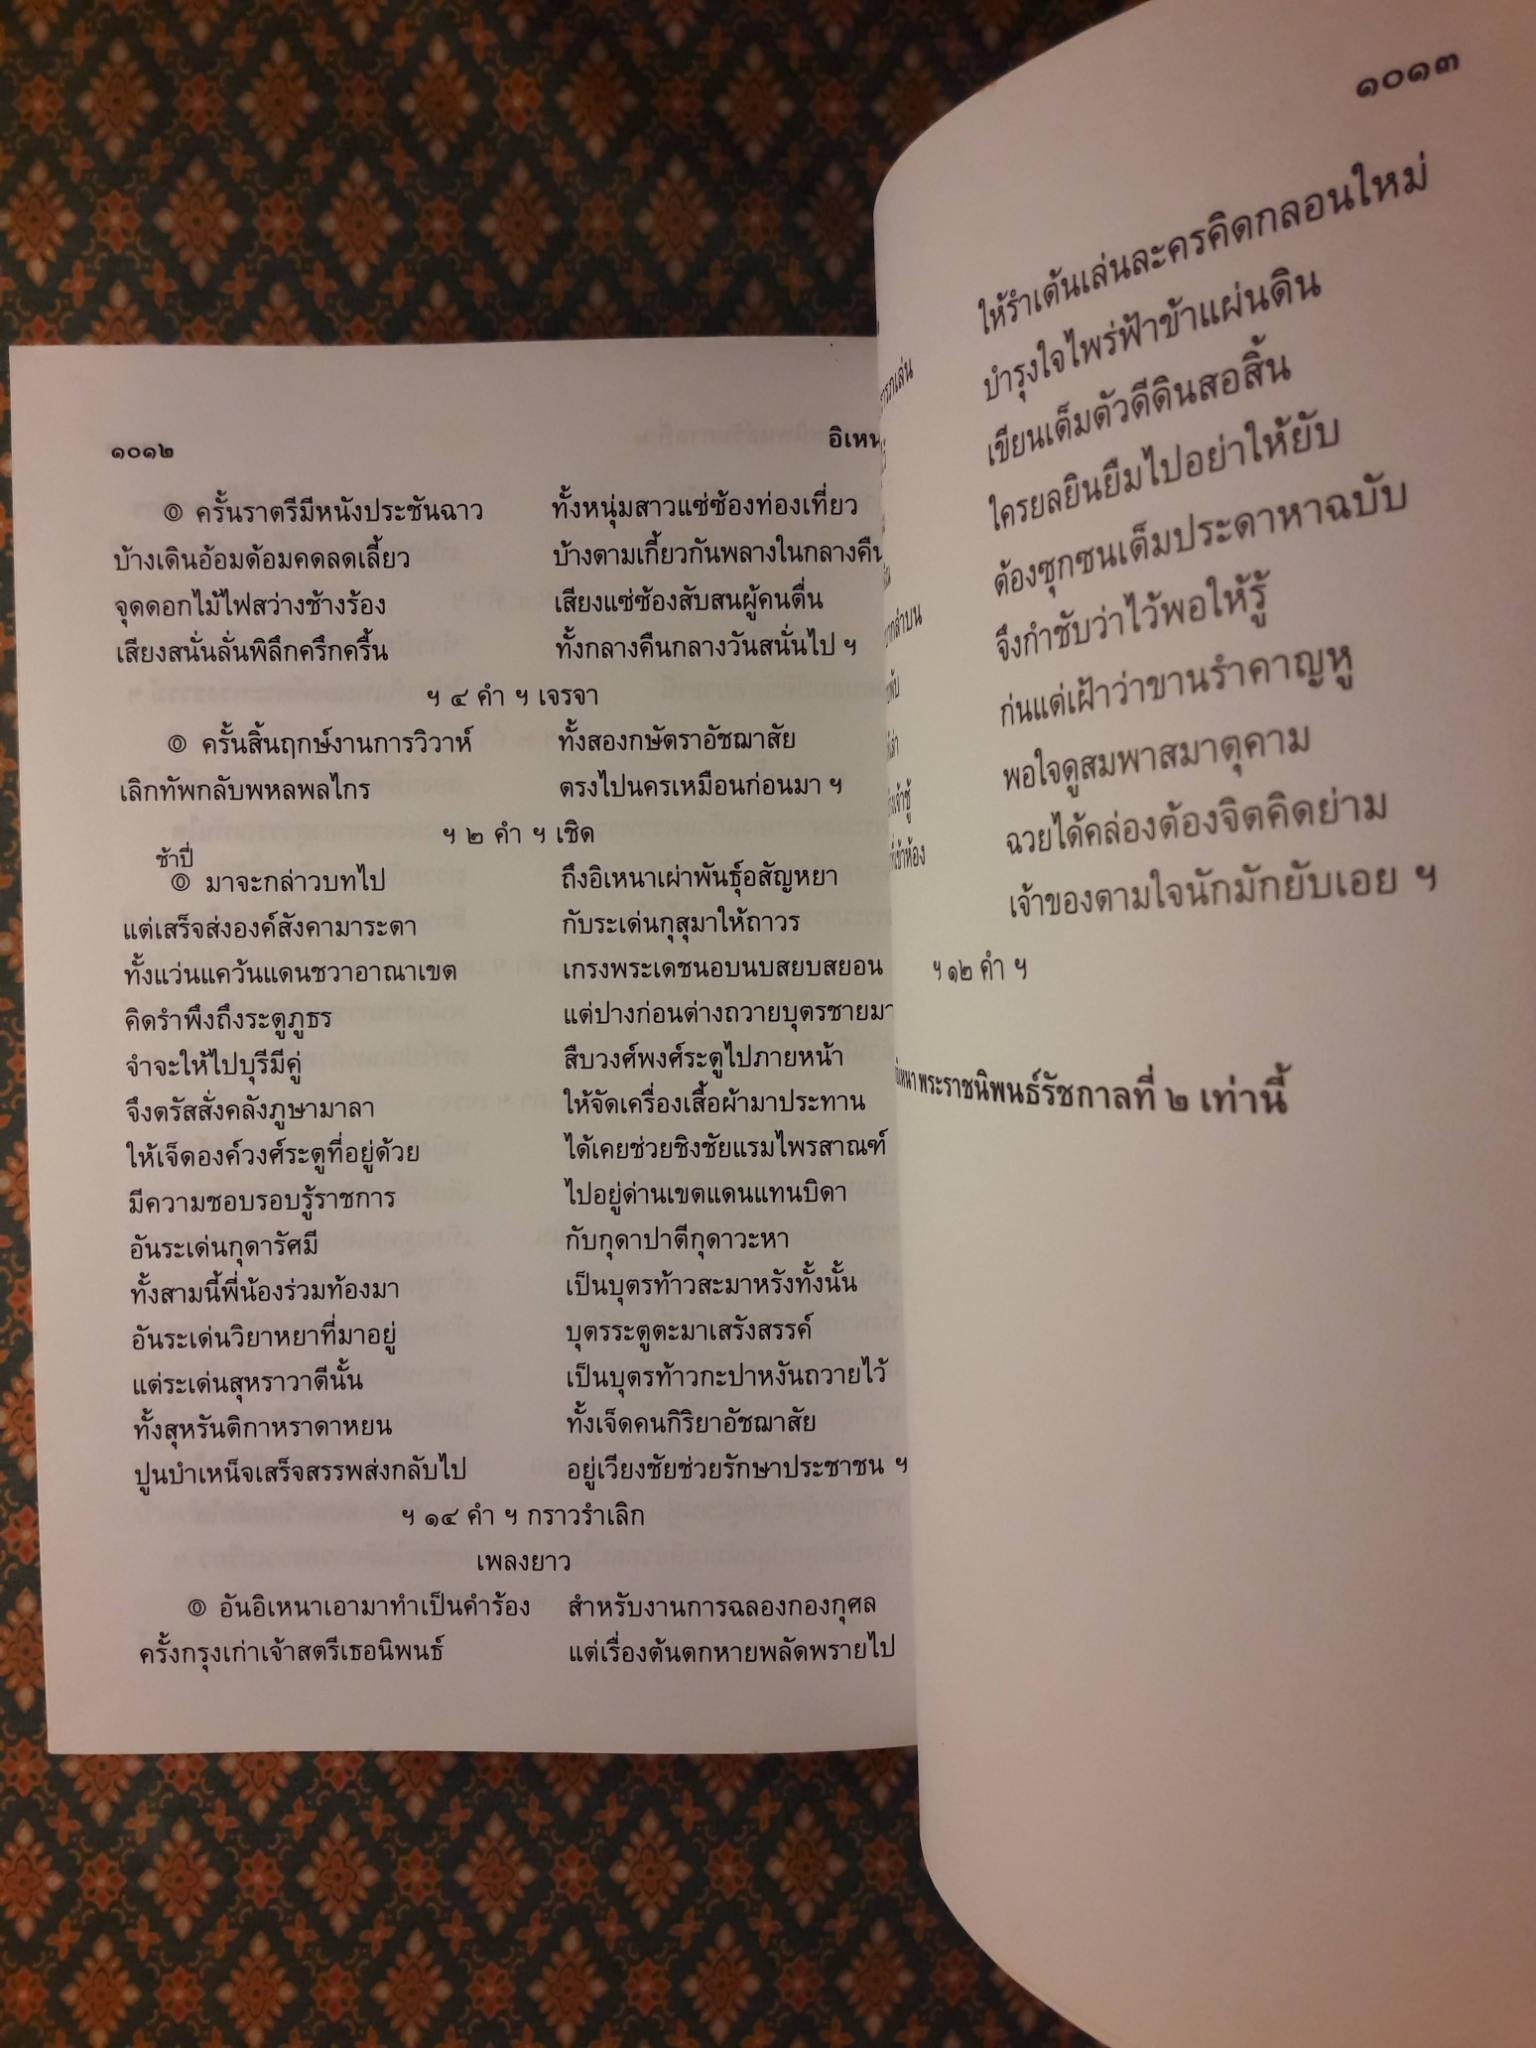 ๑๐๑๒ อิเหน
๏ ครั้นราตรีมีหนังประชันฉาว ทั้งหนุ่มสาวแซ่ซ้องท่องเที่ยว
บ้างเดินอ้อมด้อมคดลดเลี้ยว บ้างตามเกี้ยวกันพลางในกลางคืน
จุดดอกไม้ไฟสว่างช้างร้อง เสียงแซ่ซ้องสับสนผู้คนตื่น
เสียงสนั่นลั่นพิลึกครึกครื้น ทั้งกลางคืนกลางวันสนั่นไป ฯ
ฯ ๔ คำ ฯ เจรจา
๏ ครั้นสิ้นฤกษ์งานการวิวาห์ ทั้งสองกษัตราอัชฌาสัย
เลิกทัพกลับพหลพลไกร ตรงไปนครเหมือนก่อนมา ฯ
ฯ ๒ คำ ฯ เชิด
ช้าปี่
๏ มาจะกล่าวบทไป ถึงอิเหนาเผ่าพันธุ์อสัญหยา
แต่เสร็จส่งองค์สังคามาระตา กับระเด่นกุสุมาให้ถาวร
ทั้งแว่นแคว้นแดนชวาอาณาเขต เกรงพระเดชนอบนบสยบสยอน
คิดรำพึงถึงระตูภูธร แต่ปางก่อนต่างถวายบุตรชายมา
จำจะให้ไปบุรีมีคู่ สืบวงศ์พงศ์ระตูไปภายหน้า
จึงตรัสสั่งคลังภูษามาลา ให้จัดเครื่องเสื้อผ้ามาประทาน
ให้เจ็ดองค์วงศ์ระตูที่อยู่ด้วย ได้เคยช่วยชิงชัยแรมไพรสาณฑ์
มีความชอบรอบรู้ราชการ ไปอยู่ด่านเขตแดนแทนบิดา
อันระเด่นกุดารัศมี กับกุดาปาตีกุดาวะหา
ทั้งสามนี้พี่น้องร่วมท้องมา เป็นบุตรท้าวสะมาหรังทั้งนั้น
อันระเด่นวิยาหยาที่มาอยู่ บุตรระตูตะมาเสรังสรรค์
แต่ระเด่นสุหราวาตีนั้น เป็นบุตรท้าวกะปาหงันถวายไว้
ทั้งสุหรันติกาหราดาหยน ทั้งเจ็ดคนกิริยาอัชฌาสัย
ปูนบำเหน็จเสร็จสรรพส่งกลับไป อยู่เวียงชัยช่วยรักษาประชาชน ฯ
ฯ ๑๔ คำ ฯ กราวรำเลิก
เพลงยาว
๏ อันอิเหนาเอามาทำเป็นคำร้อง สำหรับงานการฉลองกองกุศล
ครั้งกรุงเก่าเจ้าสตรีเธอนิพนธ์ แต่เรื่องต้นตกหายพลัดพรายไป
๑๐๑๓
ให้รำเต้นเล่นละครคิดกลอนใหม่
บำรุงใจไพร่ฟ้าข้าแผ่นดิน
เขียนเต็มตัวดีดินสอสิ้น
ใครยลยินยืมไปอย่าให้ยับ
ต้องซุกซนเต็มประดาหาฉบับ
จึงกำชับว่าไว้พอให้รู้
ก่นแต่เฝ้าว่าขานรำคาญหู
พอใจดูสมพาสมาตุคาม
ฉวยได้คล่องต้องจิตคิดย่าม
เจ้าของตามใจนักมักยับเอย ฯ
ฯ ๑๒ คำ ฯ
พระราชนิพนธ์รัชกาลที่ ๒ เท่านี้